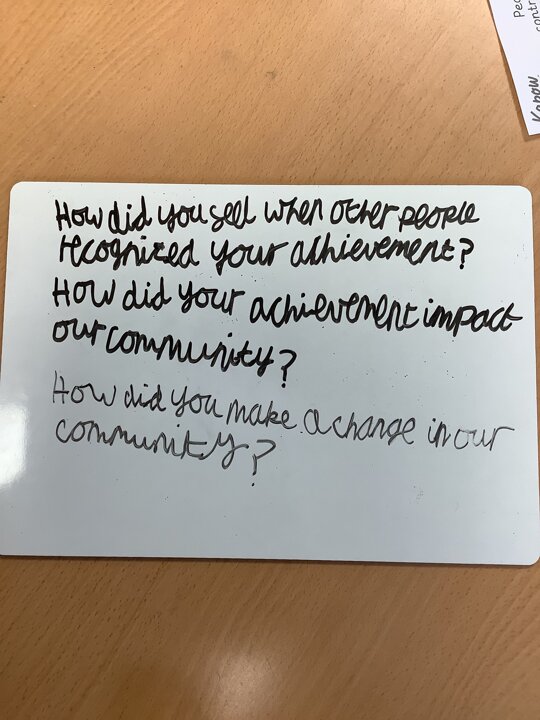 How did you seel when other people
recognized your achievement?
How did your achievement impact
our community?
How did you make a change in our
community?
Kapow
contr